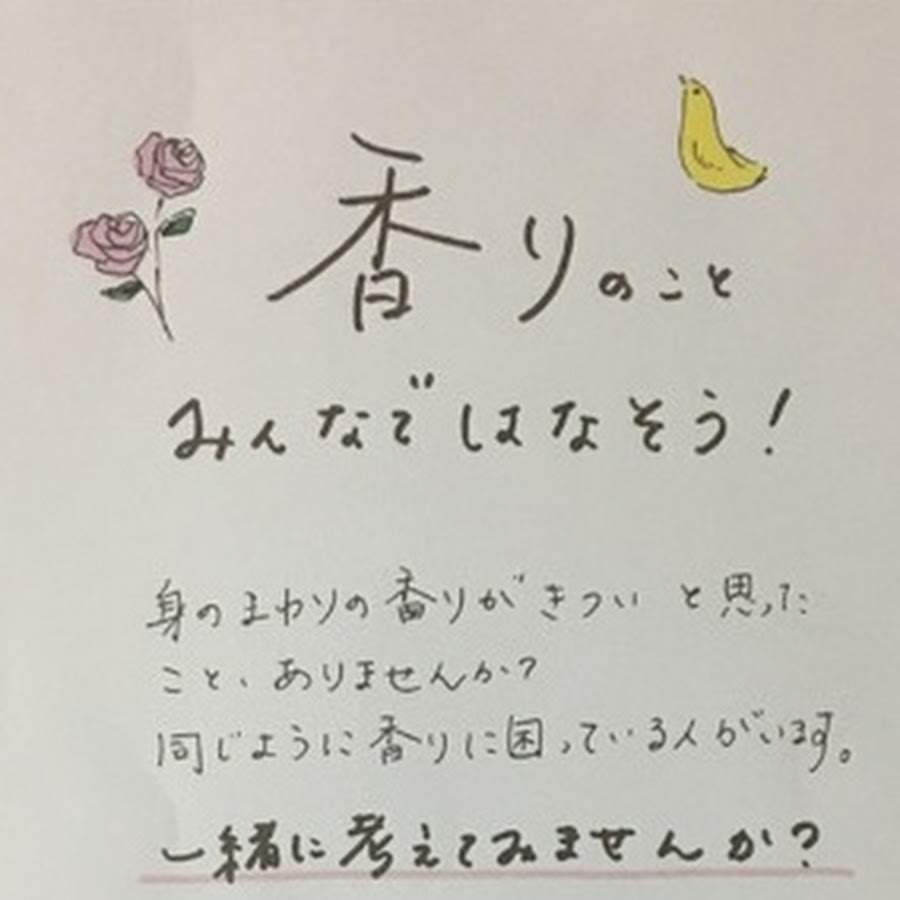 香りのこと
みんなではなそう!
身のまわりの香りがきつい と思った
こと、ありませんか?
同じように香りに困っている人がいます。
一緒に考えてみませんか?